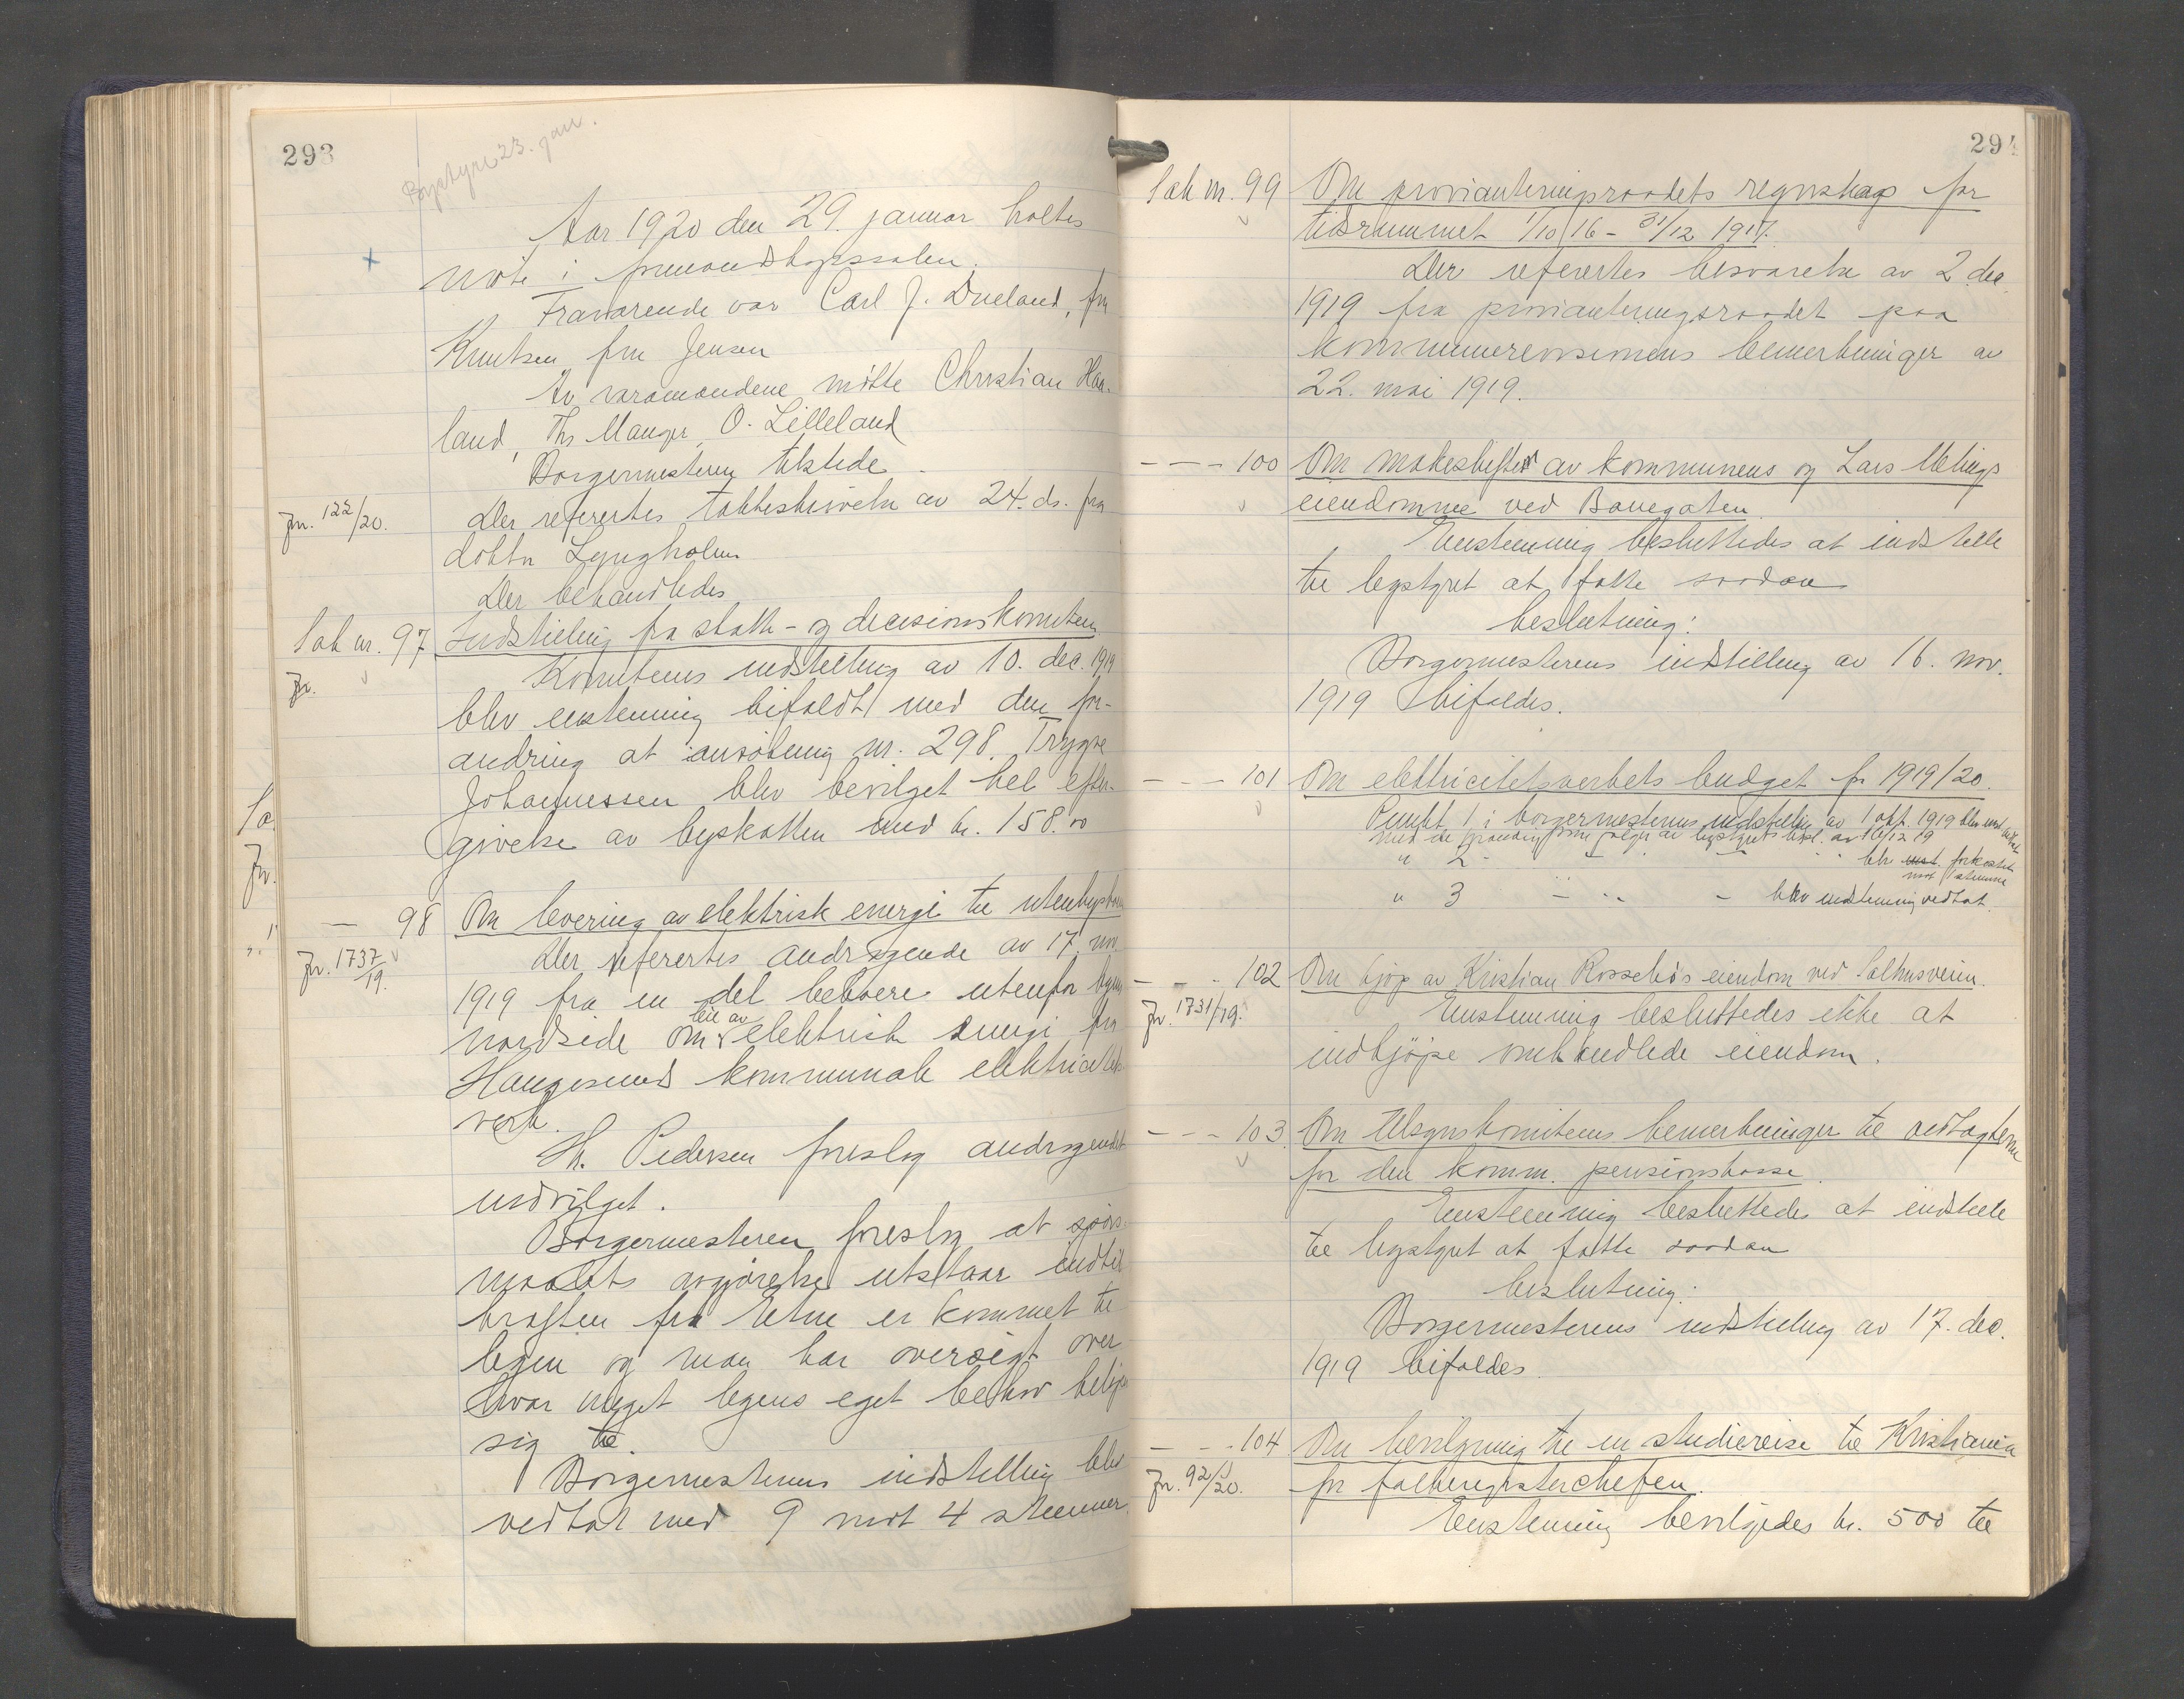 293
Bystyre 23. jan.
Aar 1920 den 29. januar holtes
möte i formandskapssalen.
Fraværende var Carl J. Dueland, fru
Knutsen, fru Jensen
Av varamændene mötte Christian Haa-
land, Ths Manger, O. Lilleland
Borgermesteren tilstede.
Jnr. 122/20.
Der refertes takkeskrivelse av 24. ds. fra
doktor Lyngholm
Der behandledes
Sak nr. 97
Indstilling fra skatte- og decisionskomiteen
Jnr.
Komiteens indstilling av 10. dec. 1919
blev enstemmig bifaldt med den for-
andring at ansökning nr. 298, Trygve
Johannessen blev bevilget hel efter-
givelse av byskatten med kr. 158.00
— 98
Om levering av elektrisk energi til utenbysboende
Jnr. 1737/19.
Der refertes andragende av 17. nov.
1919 fra en del beboere utenfor byens
nordside om leie av elektrisk energi fra
Haugesund kommunale elektricitets-
verk.
Hr. Pedersen foreslog andragendet
indvilget.
Borgermesteren foreslog at spörs-
maalets avgjörelse utstaar indtil
kraften fra Etne er kommet til
byen og man har oversigt over
hvor meget byens eget behov belöper
sig til.
Borgermesterens indstilling blev
vedtat med 9 mot 4 stemmer.
294
Sak nr. 99
Om provianteringsraadets regnskap for
tidsrummet 1/10 16 - 31/12 1917.
Der refertes besvarelse av 2. dec.
1919 fra provianteringsraadet paa
kommunerevisionens bemerkninger av
22. mai 1919.
- - - 100
Om makeskifte av kommunens og Lars Melings
eiendomme ved Bauegaten.
Enstemmig besluttedes at indstille
til bystyret at fatte saadan
beslutning:
Borgermesterens indstilling av 16. nov.
1919 bifaldes.
- - - 101
Om elektricitetsverkets budget for 1919/20.
Punkt 1 i borgermesterens indstilling av 1 okt. 1919 blev enst. vedtat
med de forandringer som fölger av bystyrets besl. av 16/12 19
" 2 - - - blv enst. forkastet
mot 1 stemme
" 3 - - - blev enstemmig vedtat.
- - - 102
Om kjöp av Kristian Rossebös eiendom ved Salhusveien.
Jnr. 1731/19.
Enstemmig besluttedes ikke at
indkjöpe omhandlede eiendom.
- - - 103
Om tilsynskomiteens bemerkninger til vedtægterne
for den komm. pensionskasse.
Enstemmig besluttedes at indstille
til bystyret at fatte saadan
beslutning:
Borgermesterens indstilling av 17. dec.
1919 bifaldes.
- - - 104
Om bevilgning til en studiereise til Kristiania
Jnr. 92/20.
for folkeregisterchefen.
Enstemmig bevilgedes kr. 500 til